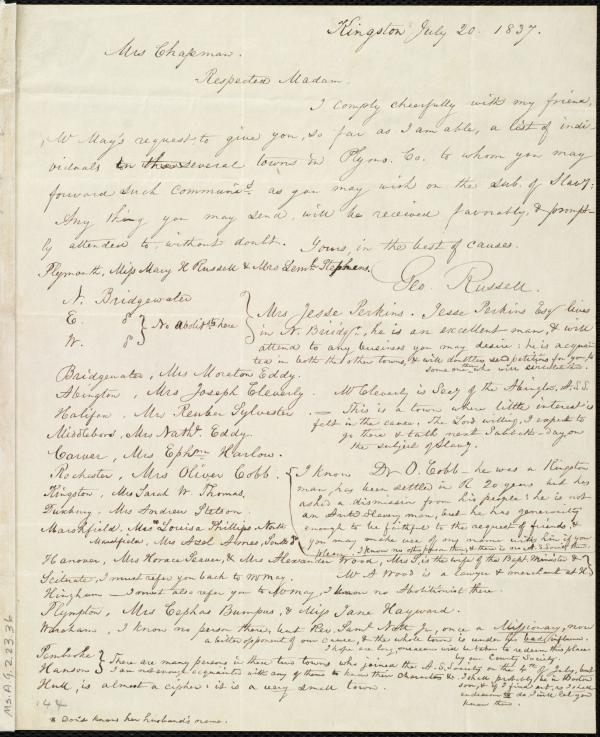 Kingston July 20. 1837.
Mrs Chapman.
Respected Madam.
I comply cheerfully with my friend,
Mr May's request to give you, so far as I am able, a list of indi-
viduals in the several towns in Plym. Co. to whom you may
forward such communnd. as you may wish on the sub. of Slavy;
Any thing you may send will be received favorably, & prompt-
ly attended to, without doubt. Yours, in the best of causes.
Geo. Russell.
Plymouth, Miss Mary H Russell & Mrs Lemł. Stephens.
N. Bridgewater
E. do
W. do } No abolitts here
Mrs Jesse Perkins. Jesse Perkins Esqr lives
in N. Bridgr., he is an excellent man, & will
attend to any business you may desire: he is acquain-
ted in both the other towns, & will doubtless send petitions for you to
some one who will circulate them.
Bridgewater, Mrs Moreton Eddy.
Abington, Mrs Joseph Cleverly. Mr Cleverly is Secy of the Abingtn. A.S.S
Halifax. Mr Reuben Sylvester. — This is a town where little interest is
felt in the cause. The Lord willing, I expect to
go there & talk next Sabbath-day on
the subject of Slavy.
Middleboro, Mrs Nathl. Eddy.
Carver, Mrs Ephm Harlow.
Rochester, Mrs Oliver Cobb.
I know Dr O. Cobb — he was a Kingston
man, has been settled in R 20 years but has
asked a dismission from his people: he is not
an Anti Slavery man, but he has generosity
enough to be faithful to the request of friends, &
you may make use of my name with him if you
please. I know no other person there, & there is no A.S. Soc. there.
Kingston, Mrs Sarah W. Thomas.
Duxbury. Mrs Andrew Stetson.
Marshfield. Mrs Louisa Phillips, North
Marshfield, Mrs Azel Ames, South do
Hanover, Mrs Horace Seaver, & Mrs Alexander Wood, Mrs S. is the wife of the Bapt. Minister &
Mr A Wood is a lawyer & merchant at H
Scituate, I must refer you back to Mr May.
Hingham — I must also refer you to Mr May, I know no Abolitionist there.
Plympton, Mrs Cephas Bumpus, & Miss Jane Hayward.
Wareham, I know no person there, but Rev. Saml. Nott Jr., once a Missionary, now
a bitter opponent of our cause, & the whole town is under the bad influence.
I hope ere long, measures will be taken to redeem this place
by our County Society.
Pembroke
Hanson } There are many persons in these two towns who joined the A.S. Society on the 4th of July, but
I am not enough acquainted with any of them to know their characters &c. I shall probably be in Boston
soon, & if I find out, as I shall
endeavor to do I will let you
know then.
Hull, is almost a cipher: it is a very small town.
* Don't know her husband's name.
Ms.A.9.2.9.36